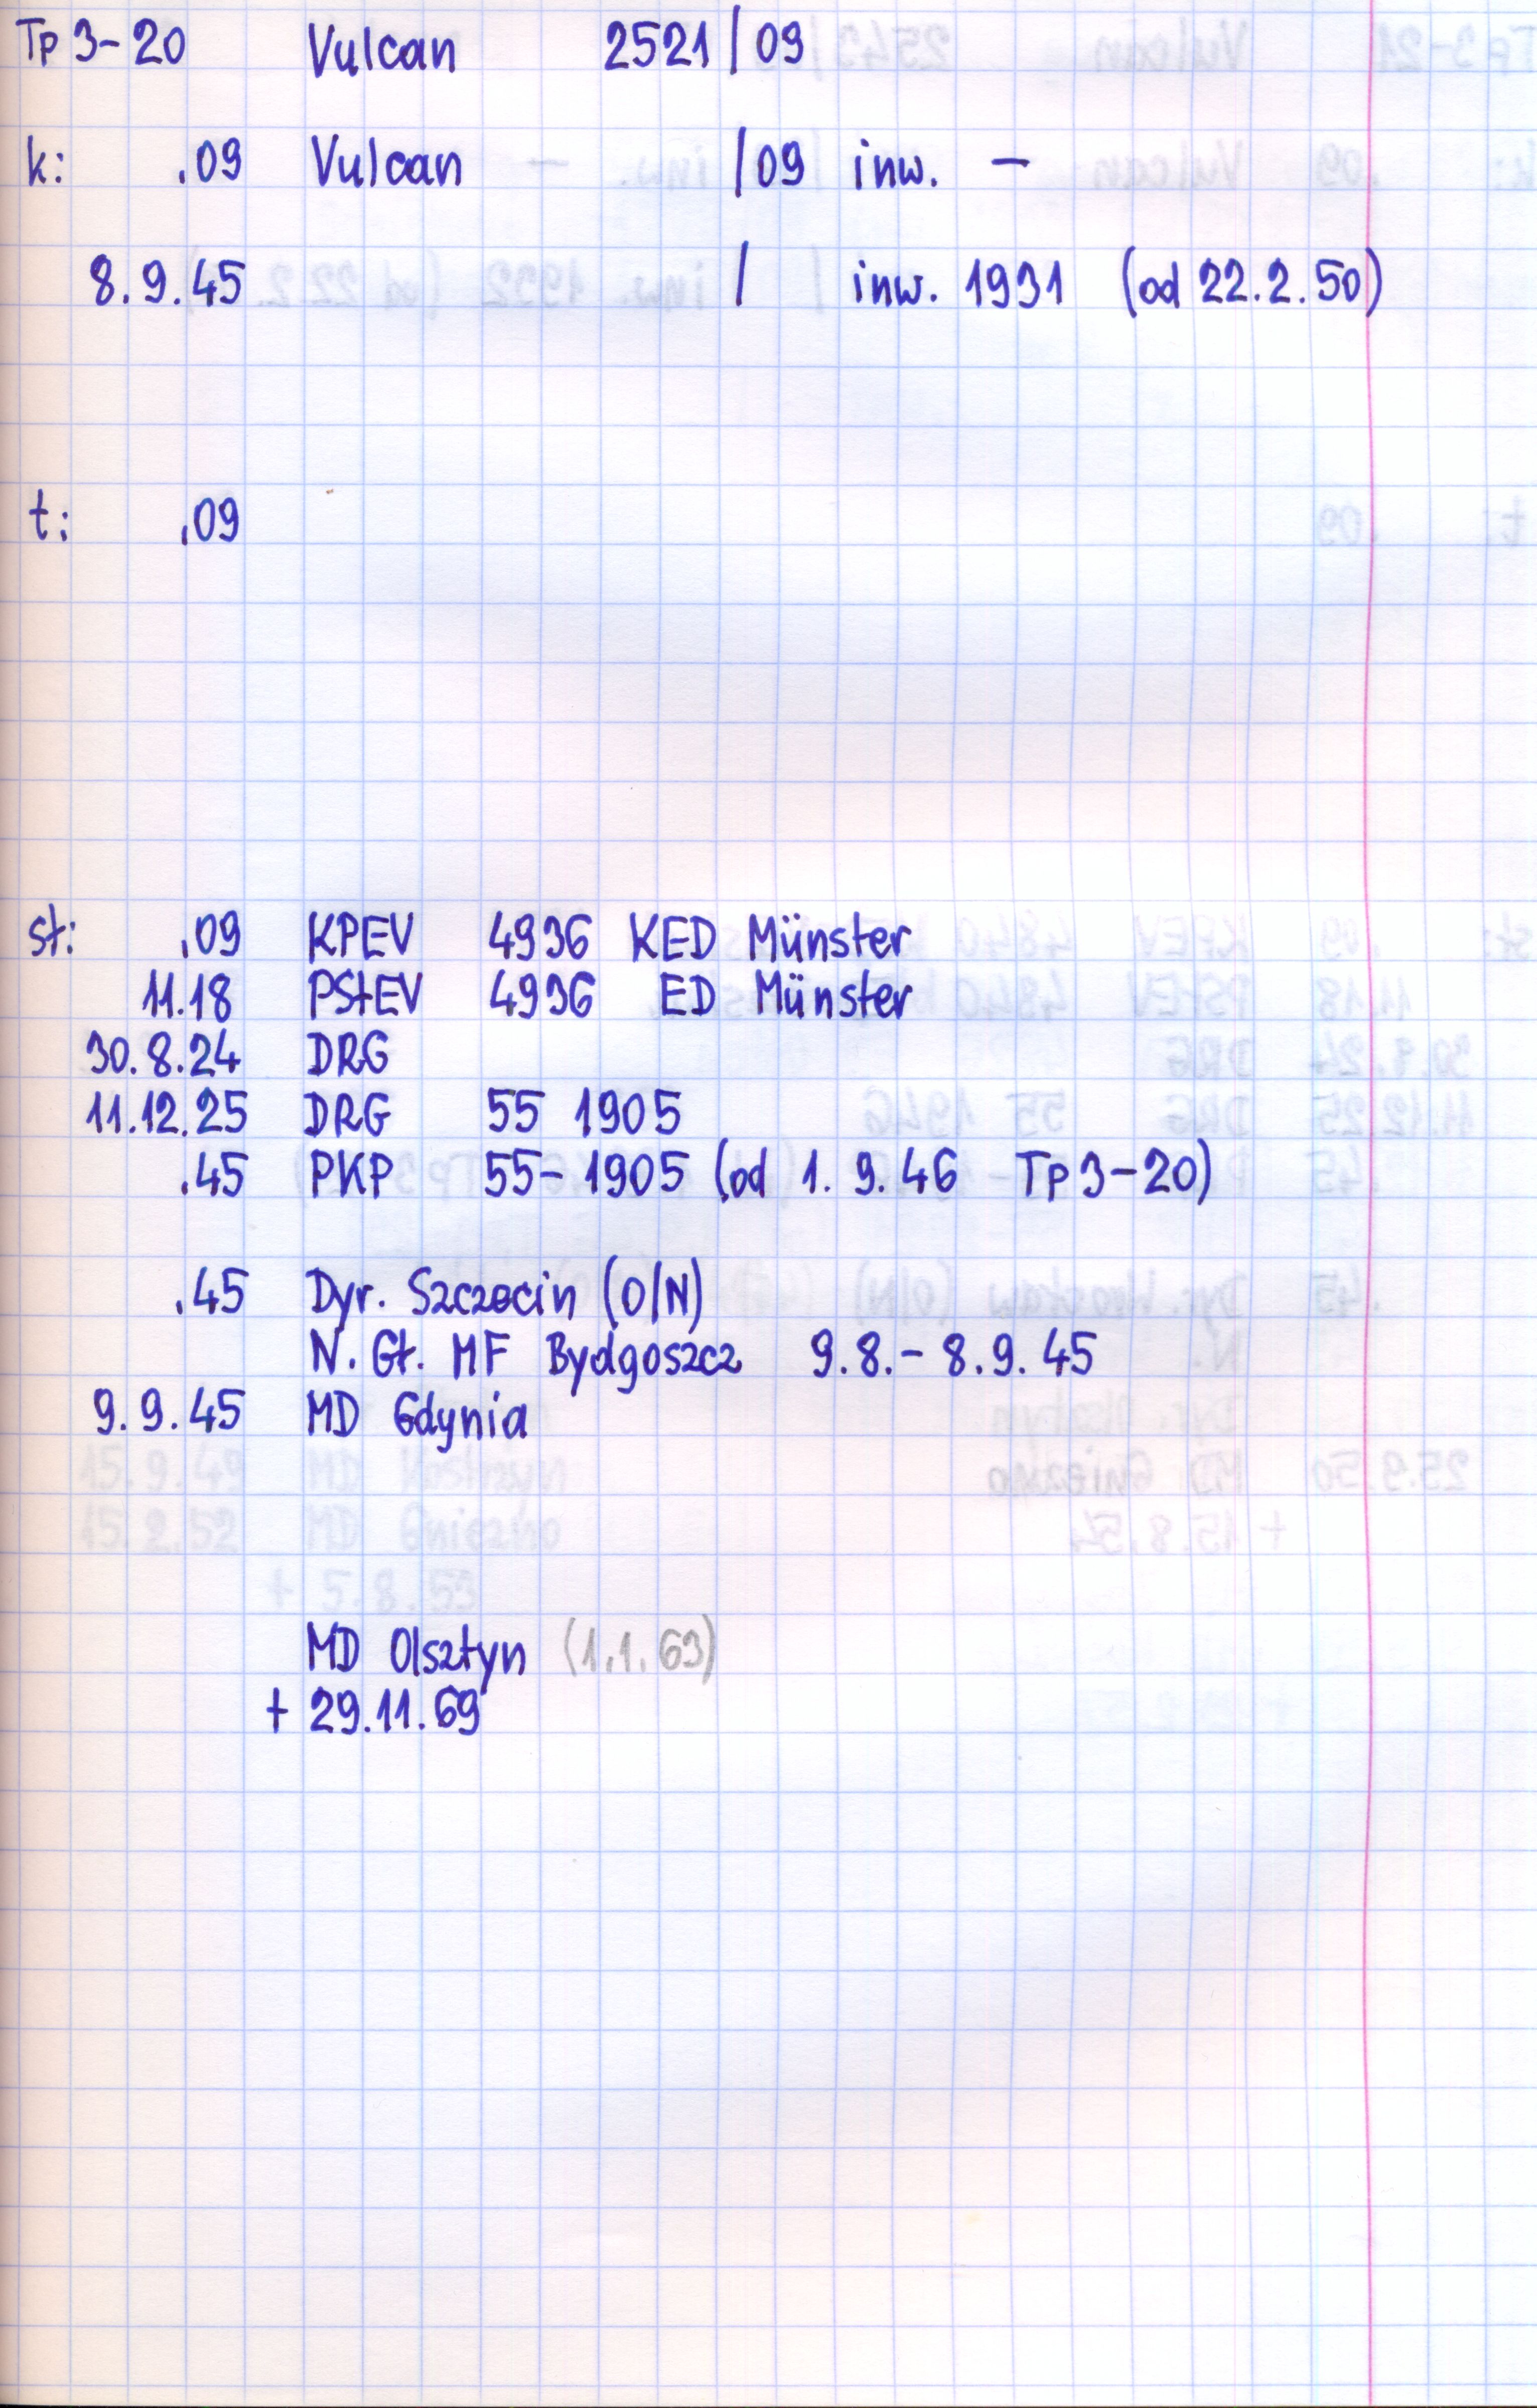 Tp 3-20 Vulcan 2521/09
k: .09 Vulcan /09 inw. -
8.9.45 / inw. 1931 (od 22.2.50)
t: .09
st: .09 KPEV 4936 KED Münster
11.18 PStEV 4936 ED Münster
30.8.24 DRG
11.12.25 DRG 55 1905
.45 PKP 55-1905 (od 1.9.46 Tp3-20)
.45 Dyr. Szczecin (O/N)
N. Gł. MF Bydgoszcz 9.8.- 8.9.45
9.9.45 MD Gdynia
15.9.49 MD Kostrzyn
15.2.52 MD Gniezno
+ 5.8.53
MD Olsztyn (1.1.63)
+ 29.11.69